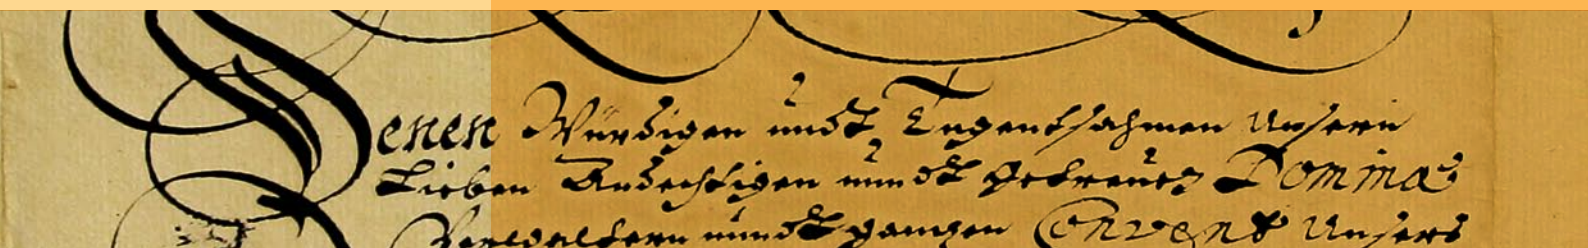 Denen Würdigen undt Tugentsahmen Unsern
Lieben Andechtigen unndt getreuen Dominae
Verwaltern unndt gantzen Convent Unsers